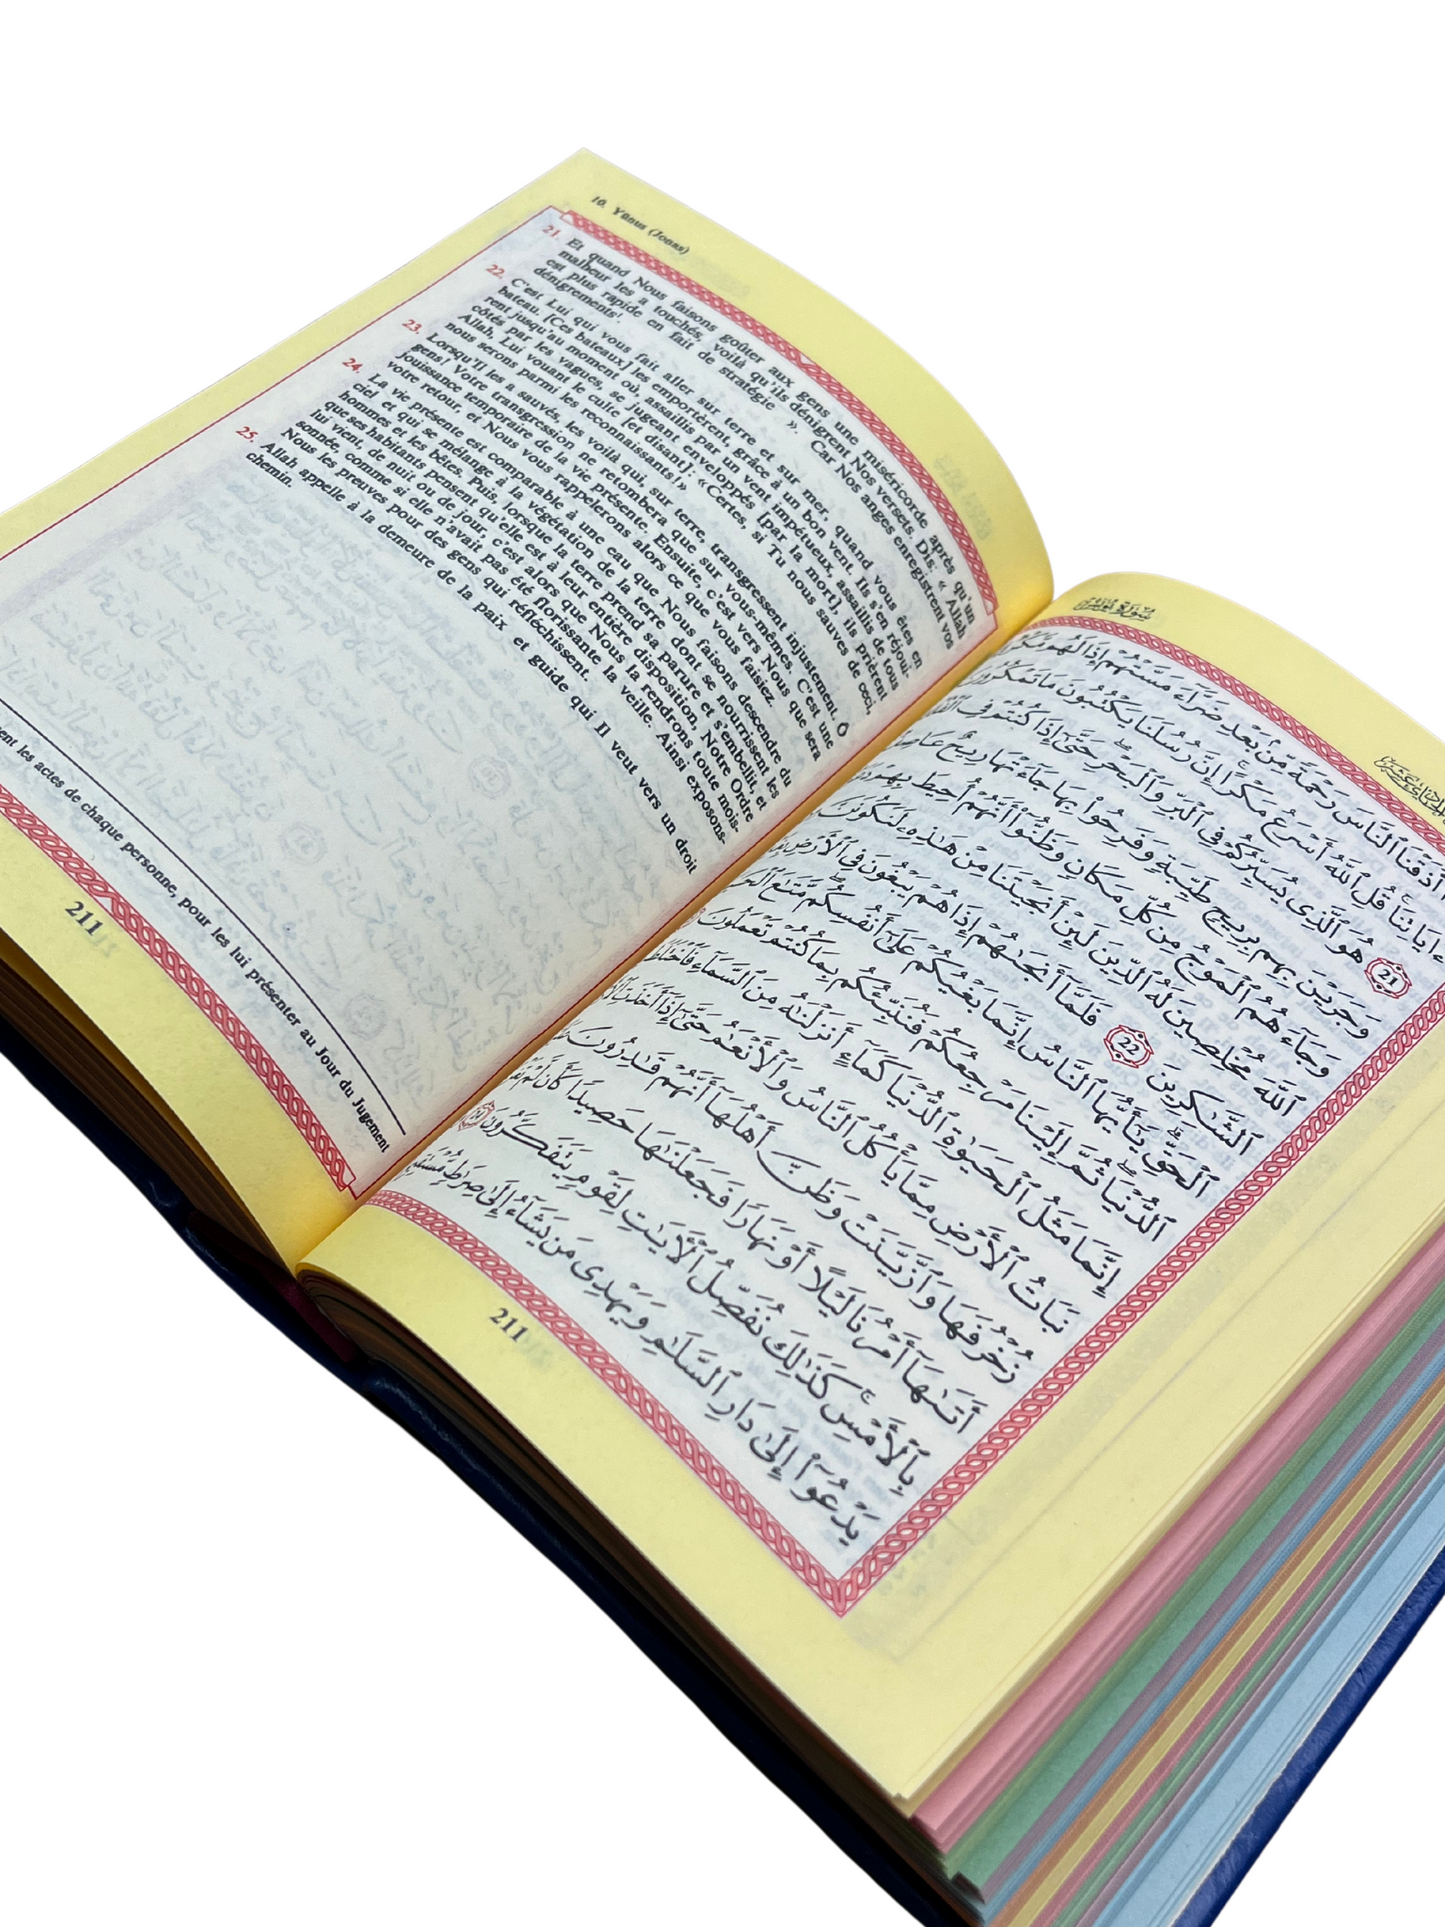 10. Yūnus (Jonas)
21. Et quand Nous faisons goûter aux gens une miséricorde après qu'un
malheur les a touchés, voilà qu'ils dénigrent Nos versets. Dis: « Allah
est plus rapide en fait de stratégie ». Car Nos anges enregistrent vos
dénigrements¹.
22. C'est Lui qui vous fait aller sur terre et sur mer, quand vous êtes en
bateau. [Ces bateaux] les emportèrent, grâce à un bon vent. Ils s'en réjoui-
rent jusqu'au moment où, assaillis par un vent impétueux, assaillis de tous
côtés par les vagues, se jugeant enveloppés [par la mort], ils prièrent
Allah, Lui vouant le culte [et disant]: «Certes, si Tu nous sauves de ceci,
nous serons parmi les reconnaissants!»
23. Lorsqu'Il les a sauvés, les voilà qui, sur terre, transgressent injustement. Ô
gens! Votre transgression ne retombera que sur vous-mêmes. C'est une
jouissance temporaire de la vie présente. Ensuite, c'est vers Nous que sera
votre retour, et Nous vous rappellerons alors ce que vous faisiez.
24. La vie présente est comparable à une eau que Nous faisons descendre du
ciel et qui se mélange à la végétation de la terre dont se nourrissent les
hommes et les bêtes. Puis, lorsque la terre prend sa parure et s'embellit, et
que ses habitants pensent qu'elle est à leur entière disposition, Notre Ordre
lui vient, de nuit ou de jour, c'est alors que Nous la rendrons toute mois-
sonnée, comme si elle n'avait pas été florissante la veille. Ainsi exposons-
Nous les preuves pour des gens qui réfléchissent.
25. Allah appelle à la demeure de la paix et guide qui Il veut vers un droit
chemin.
les actes de chaque personne, pour les lui présenter au Jour du Jugement
211
أَذَقْنَا ٱلنَّاسَ رَحْمَةً مِّنۢ بَعْدِ ضَرَّآءَ مَسَّتْهُمْ إِذَا لَهُم
ءَايَاتِنَا ۚ قُلِ ٱللَّهُ أَسْرَعُ مَكْرًا ۚ إِنَّ رُسُلَنَا يَكْتُبُونَ مَا تَمْكُرُونَ
21 هُوَ ٱلَّذِى يُسَيِّرُكُمْ فِى ٱلْبَرِّ وَٱلْبَحْرِ ۖ حَتَّىٰٓ إِذَا كُنتُمْ فِى
وَجَرَيْنَ بِهِم بِرِيحٍ طَيِّبَةٍ وَفَرِحُوا۟ بِهَا جَآءَتْهَا رِيحٌ
وَجَآءَهُمُ ٱلْمَوْجُ مِن كُلِّ مَكَانٍ وَظَنُّوٓا۟ أَنَّهُمْ أُحِيطَ بِهِمْ
ٱللَّهَ مُخْلِصِينَ لَهُ ٱلدِّينَ لَئِنْ أَنجَيْتَنَا مِنْ هَٰذِهِۦ لَنَكُونَنَّ
ٱلشَّٰكِرِينَ 22 فَلَمَّآ أَنجَىٰهُمْ إِذَا هُمْ يَبْغُونَ فِى ٱلْأَرْضِ
ٱلْحَقِّ ۗ يَٰٓأَيُّهَا ٱلنَّاسُ إِنَّمَا بَغْيُكُمْ عَلَىٰٓ أَنفُسِكُم ۖ مَّتَٰعَ
ٱلدُّنْيَا ۖ ثُمَّ إِلَيْنَا مَرْجِعُكُمْ فَنُنَبِّئُكُم بِمَا كُنتُمْ تَعْمَلُونَ
إِنَّمَا مَثَلُ ٱلْحَيَوٰةِ ٱلدُّنْيَا كَمَآءٍ أَنزَلْنَٰهُ مِنَ ٱلسَّمَآءِ فَٱخْتَلَطَ
نَبَاتُ ٱلْأَرْضِ مِمَّا يَأْكُلُ ٱلنَّاسُ وَٱلْأَنْعَٰمُ حَتَّىٰٓ إِذَآ أَخَذَتِ
زُخْرُفَهَا وَٱزَّيَّنَتْ وَظَنَّ أَهْلُهَآ أَنَّهُمْ قَٰدِرُونَ
أَتَىٰهَآ أَمْرُنَا لَيْلًا أَوْ نَهَارًا فَجَعَلْنَٰهَا حَصِيدًا كَأَن لَّمْ
بِٱلْأَمْسِ ۚ كَذَٰلِكَ نُفَصِّلُ ٱلْءَايَٰتِ لِقَوْمٍ يَتَفَكَّرُونَ 24
يَدْعُوٓا۟ إِلَىٰ دَارِ ٱلسَّلَٰمِ وَيَهْدِى مَن يَشَآءُ إِلَىٰ صِرَٰطٍ
211